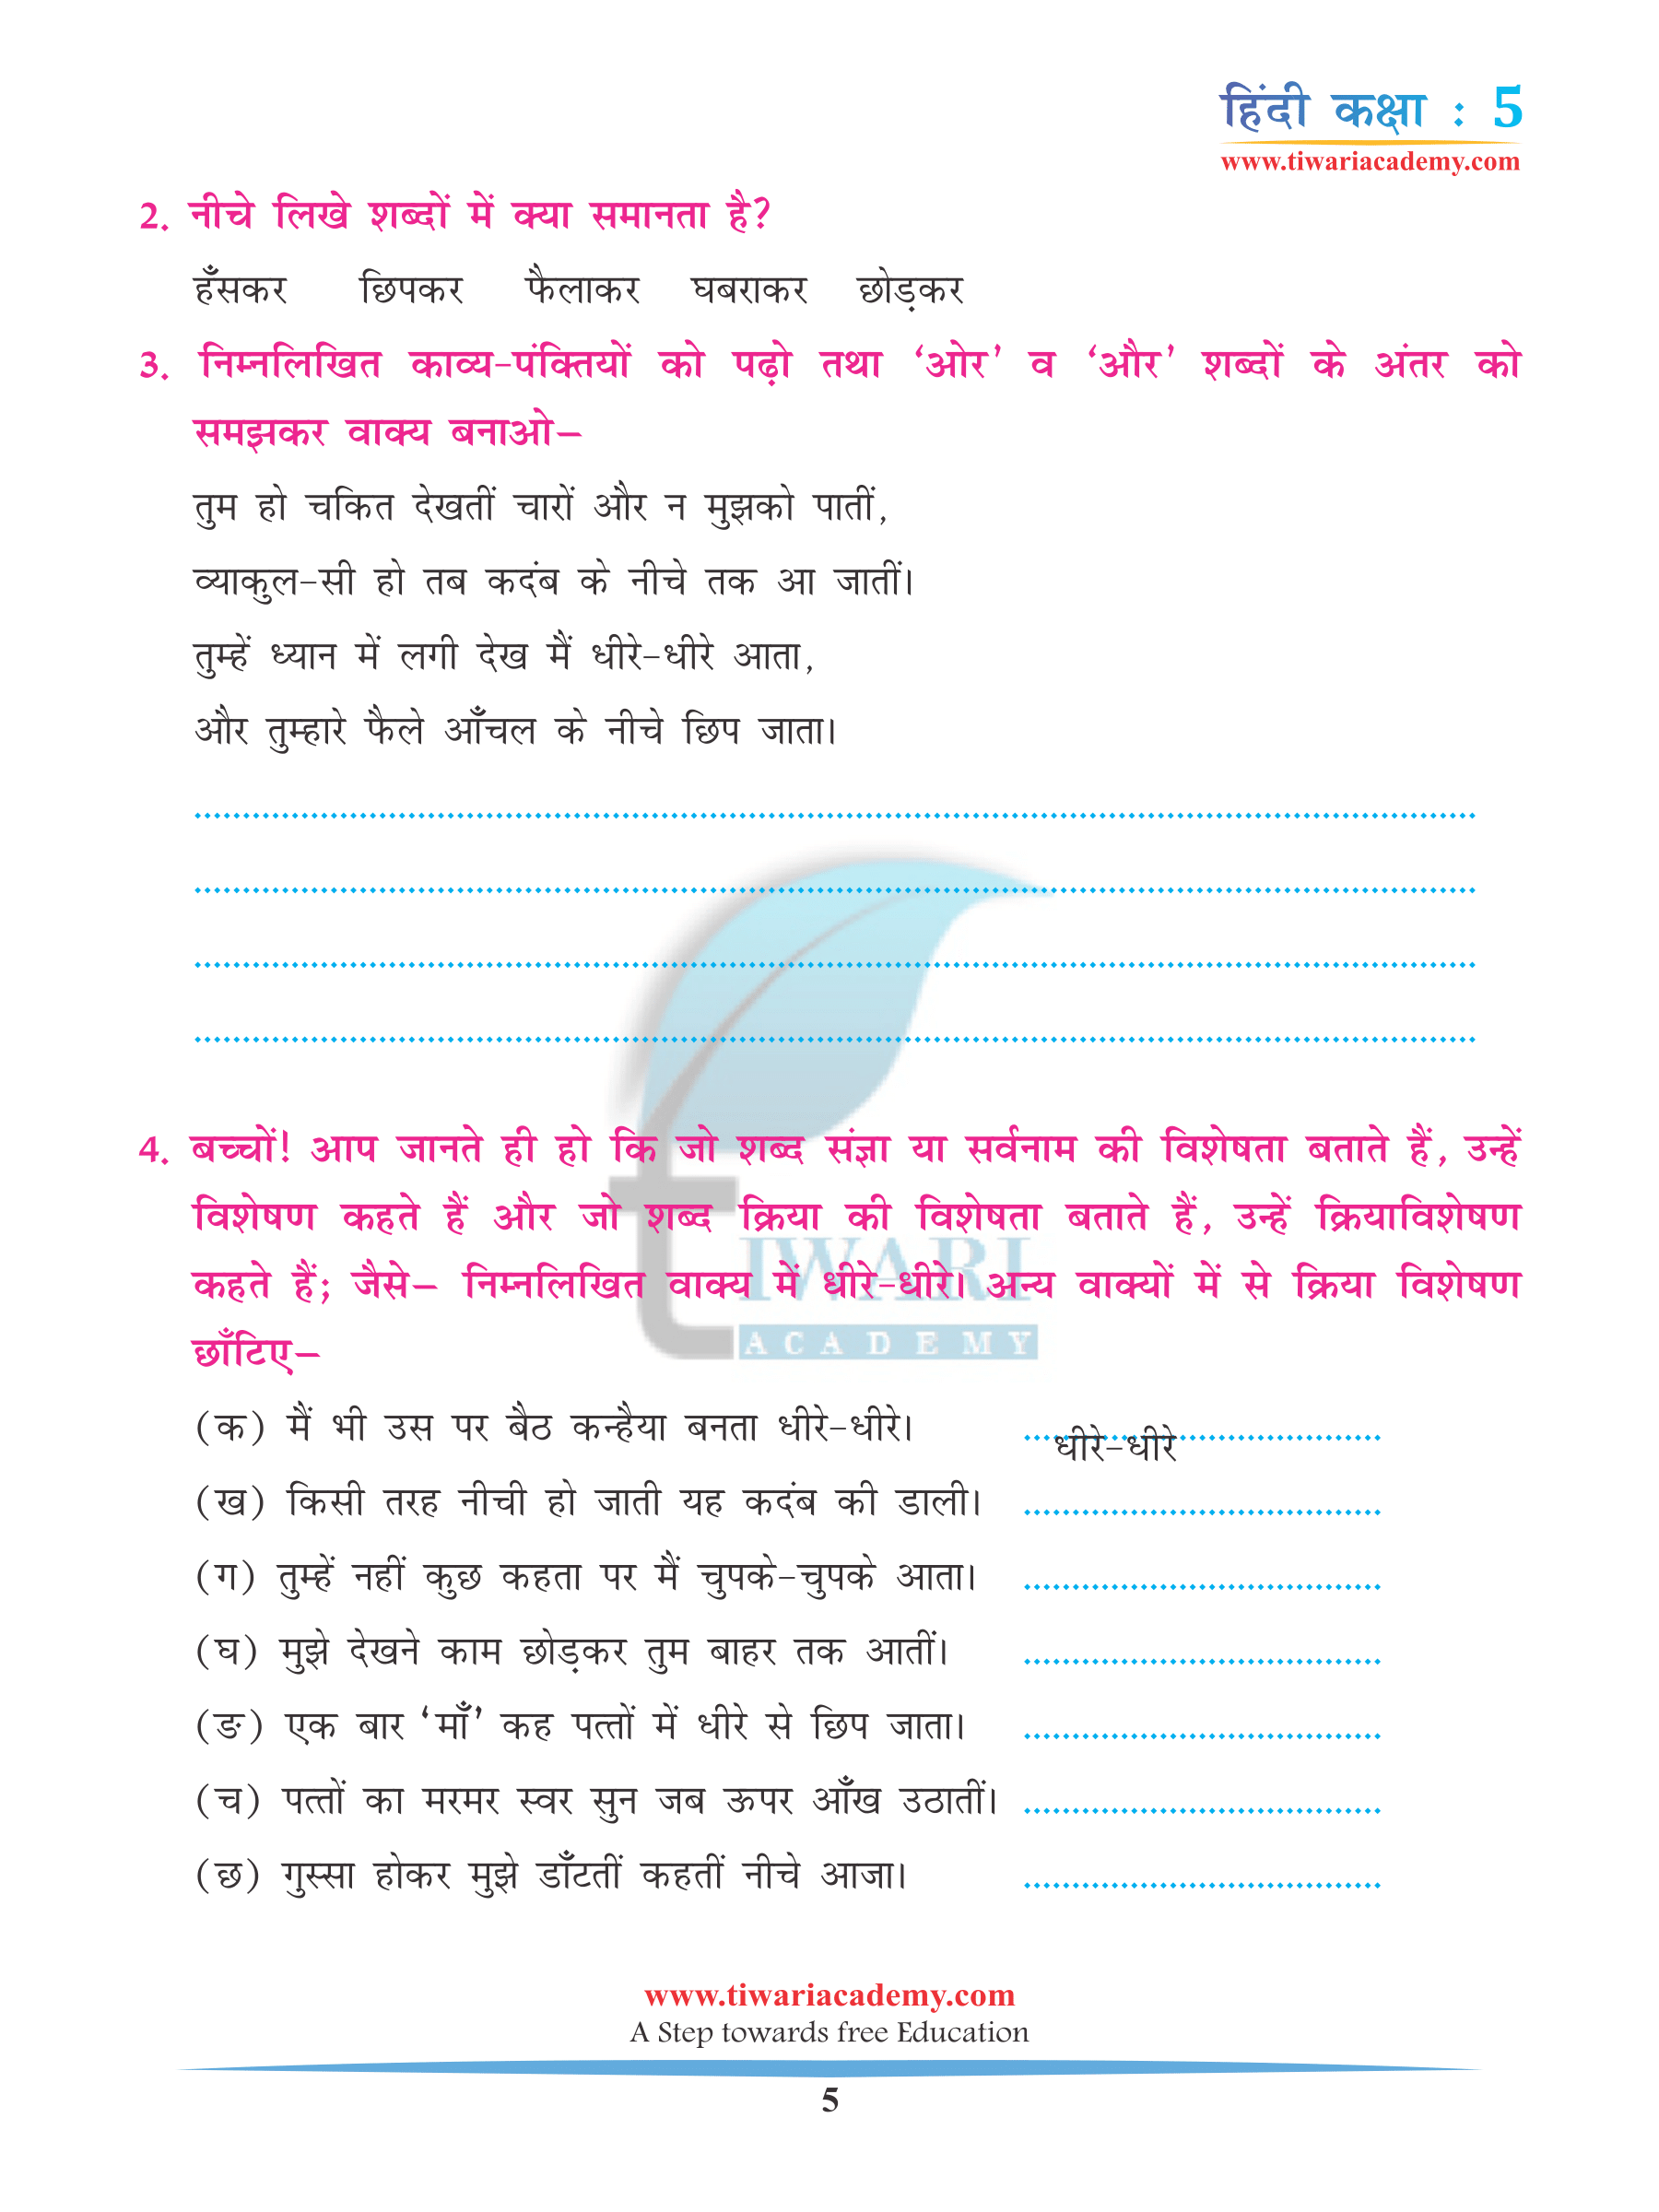 हिंदी कक्षा : 5
www.tiwariacademy.com
2. नीचे लिखे शब्दों में क्या समानता है?
हँसकर छिपकर फैलाकर घबराकर छोड़कर
3. निम्नलिखित काव्य-पंक्तियों को पढ़ो तथा ‘ओर’ व ‘और’ शब्दों के अंतर को
समझकर वाक्य बनाओ–
तुम हो चकित देखतीं चारों और न मुझको पातीं,
व्याकुल-सी हो तब कदंब के नीचे तक आ जातीं।
तुम्हें ध्यान में लगी देख मैं धीरे-धीरे आता,
और तुम्हारे फैले आँचल के नीचे छिप जाता।
4. बच्चों! आप जानते ही हो कि जो शब्द संज्ञा या सर्वनाम की विशेषता बताते हैं, उन्हें
विशेषण कहते हैं और जो शब्द क्रिया की विशेषता बताते हैं, उन्हें क्रियाविशेषण
कहते हैं; जैसे– निम्नलिखित वाक्य में धीरे-धीरे। अन्य वाक्यों में से क्रिया विशेषण
छाँटिए–
TIWARI
ACADEMY
(क) मैं भी उस पर बैठ कन्हैया बनता धीरे-धीरे। धीरे-धीरे
(ख) किसी तरह नीची हो जाती यह कदंब की डाली।
(ग) तुम्हें नहीं कुछ कहता पर मैं चुपके-चुपके आता।
(घ) मुझे देखने काम छोड़कर तुम बाहर तक आतीं।
(ङ) एक बार ‘माँ’ कह पत्तों में धीरे से छिप जाता।
(च) पत्तों का मरमर स्वर सुन जब ऊपर आँख उठातीं।
(छ) गुस्सा होकर मुझे डाँटतीं कहतीं नीचे आजा।
www.tiwariacademy.com
A Step towards free Education
5